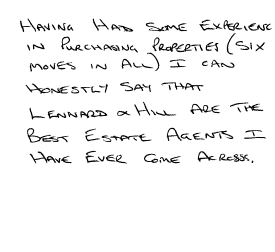 HAVING HAD SOME EXPERIENC
IN PURCHASING PROPERTIES (SIX
MOVES IN ALL) I CAN
HONESTLY SAY THAT
LENNARD & HILL ARE THE
BEST ESTATE AGENTS I
HAVE EVER COME ACROSS.